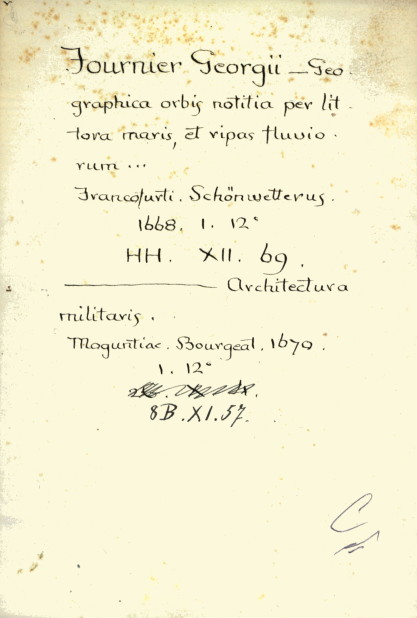 Fournier Georgii — Geo-
graphica orbis notitia per lit-
tora maris, et ripas fluvio-
rum ...
Francofurti. Schönwetterus.
1668. 1. 12°
HH. XII. 69.
——— Architectura
militaris.
Moguntiae. Bourgeat. 1670.
1. 12°
8B. XI. 57.
C